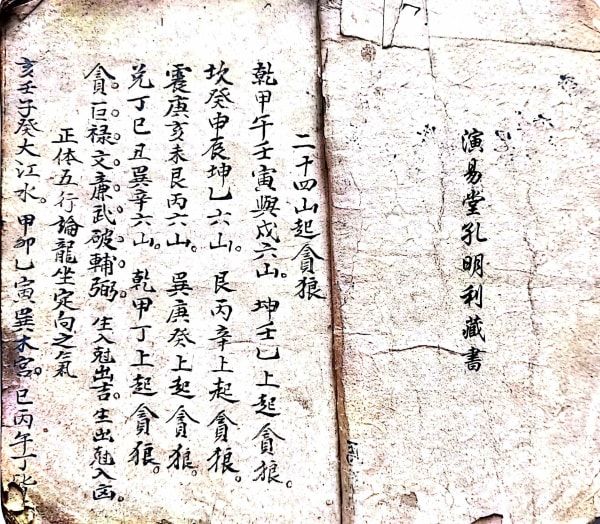 演易堂孔明利藏書
二十四山起貪狼
乾甲午壬寅與戌六山。坤壬乙上起貪狼。
坎癸申辰坤乙六山。艮丙辛上起貪狼。
震庚亥未艮丙六山。巽庚癸上起貪狼。
兌丁巳丑巽辛六山。乾甲丁上起貪狼。
貪。巨。禄。文。廉。武。破。輔。弼。生入尅出吉。生出尅入凶。
正体五行論龍坐定向之氣
亥壬子癸大江水。甲卯乙寅巽木宮。巳丙午丁皆